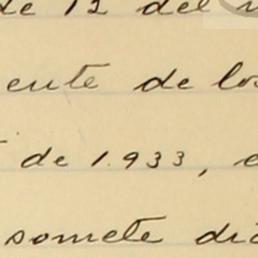 de 12 del
ente de los
de 1.933,
somete